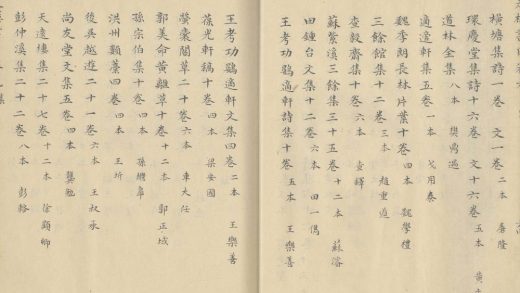 橫塘集詩一卷 文一卷 二本 唐隆
環慶堂集詩十六卷 文十六卷 五本 黃
道林全集 八本 樊
適適軒集五卷 一本 戈用泰
魏季朗長林片葉十卷 四本 魏學禮
三餘館集十二卷 三本 趙重道
查毅齋集十卷 六本 查鐸
蘇紫溪三餘集三十五卷 十二本 蘇濬
田鍾台文集十二卷 六本 田一儁
王考功鷃適軒詩集十卷 五本 王樂善
王考功鷃適軒文集四卷 二本 王樂善
葆光軒稿十卷 四本 梁安國
螢囊閣草二十卷 六本 車大任
郭美命黃離草十卷 十二本 郭正域
孫宗伯集十卷 四本 孫繼皋
洪州類藁四卷 四本 王圻
後吳越遊二十一卷 六本 王叔承
天遠樓集二十七卷 十二本 徐顯卿
尚友堂文集五卷 四本 龔勉
彭仲溪集二十二卷 八本 彭輅